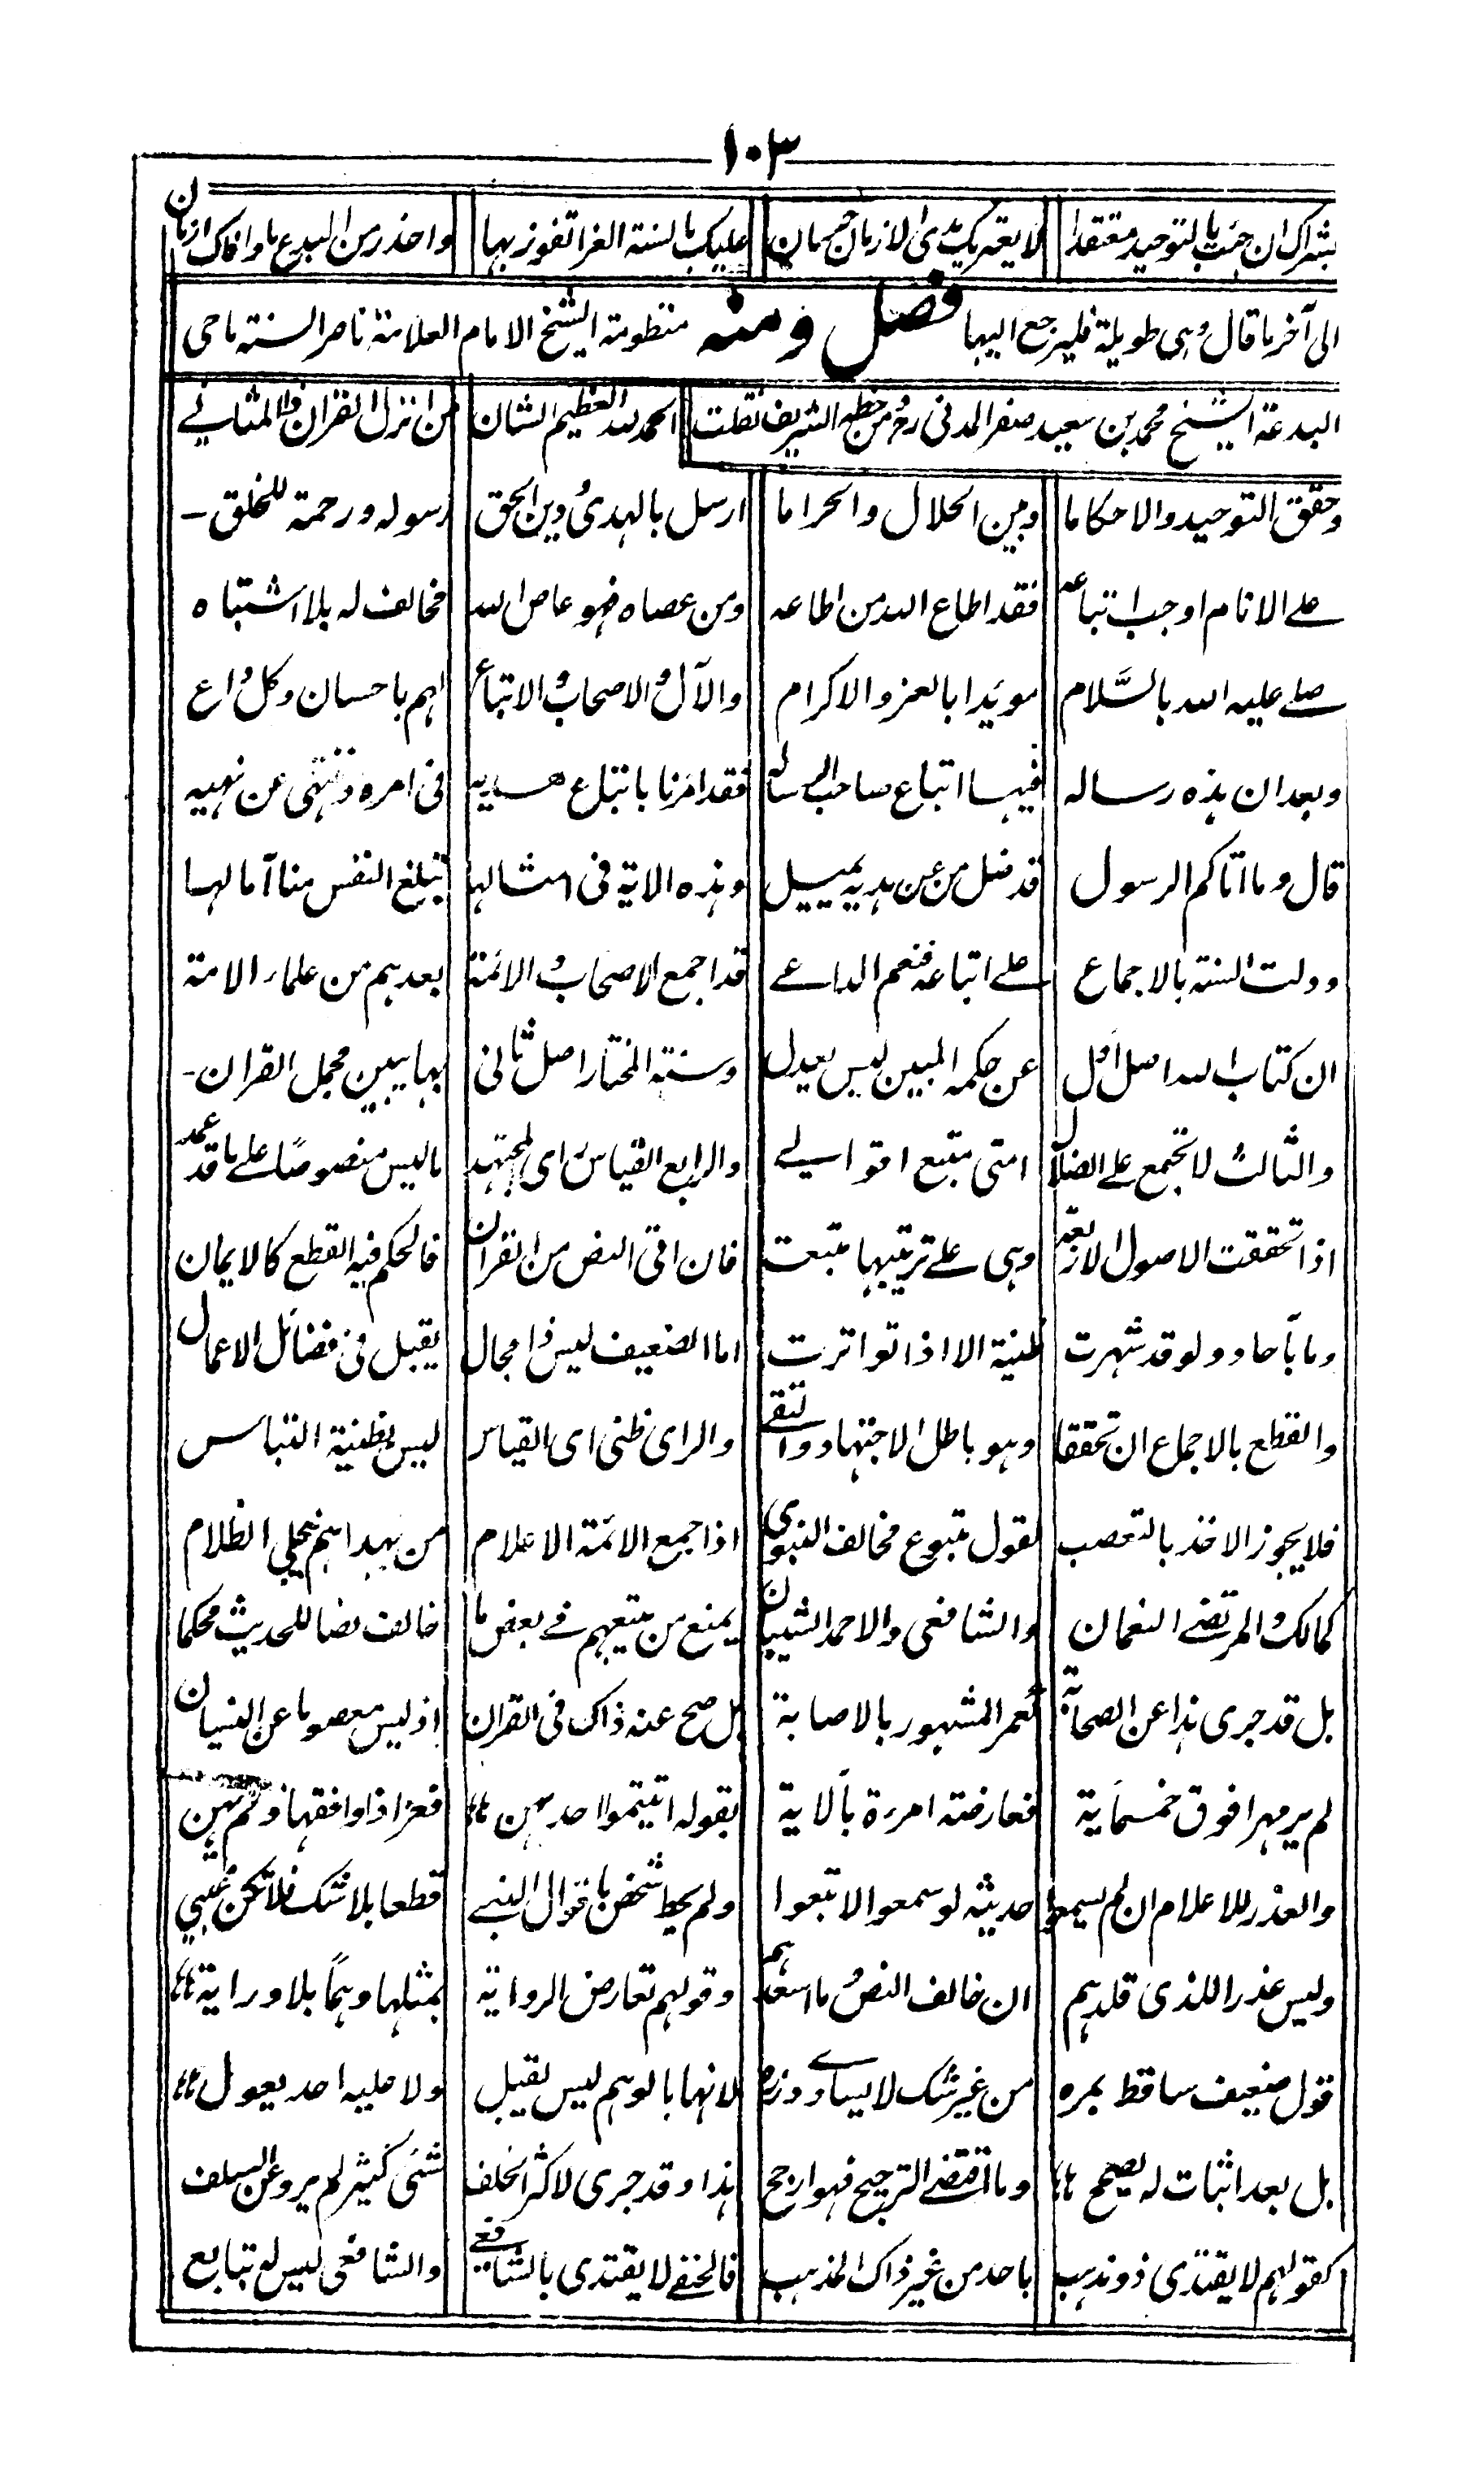 ١٠٣
بشراك ان جئت بالتوحيد معتقدا لا يعتريك بذى الازمان حسمان عليك بالسنة الغرا تفوز بها واحذر من البدع ما وافاك ازمان
الى آخر ما قال وهى طويلة فليرجع اليها فصل ومنه منظومة الشيخ الامام العلامة ناصر السنة ماحى
البدعة الشيخ محمد بن سعيد صفر المدنى رح من خطه الشريف نقلت الحمد لله العظيم الشان من انزل القران والمثانى
وحقق التوحيد والاحكاما وبين الحلال والحراما ارسل بالهدى ودين الحق رسوله ورحمة للخلق
على الانام اوجب اتباعه فقد اطاع الله من اطاعه ومن عصاه فهو عاص الله مخالف له بلا اشتباه
صلى عليه الله بالسلام مويدا بالعز والاكرام والآل والاصحاب والاتباع لهم باحسان وكل داع
وبعد ان هذه رساله فيها اتباع صاحب الرساله فقد امرنا باتباع هديه فى امره وننتهى عن نهيه
قال وما اتاكم الرسول قد ضل من عن هديه يميل وهذه الاية فى امثالها تبلغ النفس منا آمالها
ودلت السنة بالاجماع على اتباعه فنعم الداعى قد اجمع الاصحاب والائمة بعدهم من علماء الامة
ان كتاب الله اصل اول عن حكمه المبين ليس يعدل وسنة المختار اصل ثانى بها يبين مجمل القران
والثالث لا تجتمع على الضلال امتى متبع اقوالى والرابع القياس راى المجتهد ما ليس منصوصا على ما قد عهد
اذا تحققت الاصول الاربعة وهى على ترتيبها متبعت فان اتى النص من القران فالحكم فيه القطع كالايمان
وما بآحاد ولو قد شهرت ظنية الا اذا تواترت اما الضعيف ليس ذا مجال يقبل فى فضائل الاعمال
والقطع بالاجماع ان تحققا وهو باطل الاجتهاد والتقى والراى ظنى اى القياس ليس بظنية التباس
فلا يجوز الاخذ بالتعصب لقول متبوع مخالف النبوى اذا جمع الائمة الاعلام من بهداهم ينجلى الظلام
كمالك والمرتضى النعمان والشافعى والاحمد الشيبان يمنع من متبعهم فى بعض ما خالف نصا للحديث محكما
بل قد جرى هذا عن الصحابة كعمر المشهور بالاصابة بل صح عنه ذاك فى القران اذ ليس معصوما عن النسيان
لم ير مهرا فوق خمسمائة فعارضته امرءة بالاية بقوله اتيتموا احدهن فعز اذا وافقها
والعذر للاعلام ان لم يسمعوا حديثه لو سمعوا لاتبعوا ولم يحط شخص باقوال النبى قطعا بلا شك فلا تكن غبى
وليس عذرا للذى قلدهم ان خالف النص وما اسعدهم وقولهم تعارض الرواية بمثلها وهما بلا دراية
قول ضعيف ساقط بمره من غير شك لا يساوى ذره لانها بالوهم ليس يقبل ولا عليه احد يعول
بل بعد اثبات له يصحح وما اقتضى الترجيح فهو ارجح هذا وقد جرى لاكثر الخلف شئى كثير لم يرو عن السلف
كقولهم لا يقتدى ذو مذهب باحد من غير ذاك المذهب فالحنفى لا يقتدى بالشافعى والشافعى ليس له بتابع